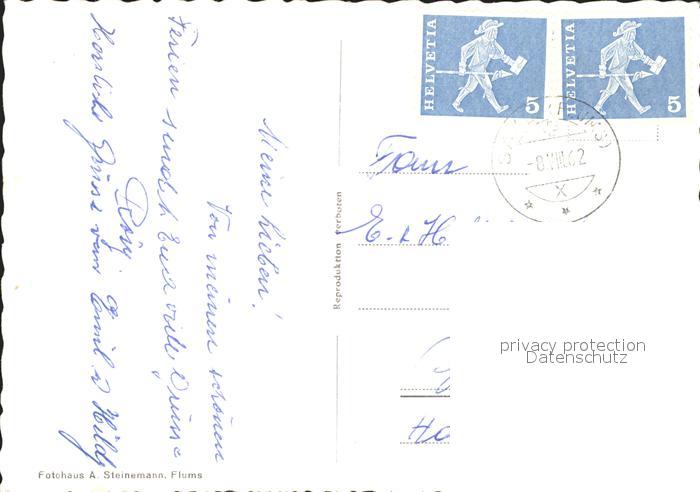 Meine Lieben!
Von meinen schönen
Ferien sendet Euch viele Grüsse
Rösy
Herzliche Grüsse von Emil u Hildy
HELVETIA 5
HELVETIA 5
-8.VIII.62
X
Fam
E. + H
Ho
Reproduktion verboten
privacy protection
Datenschutz
Fotohaus A. Steinemann, Flums